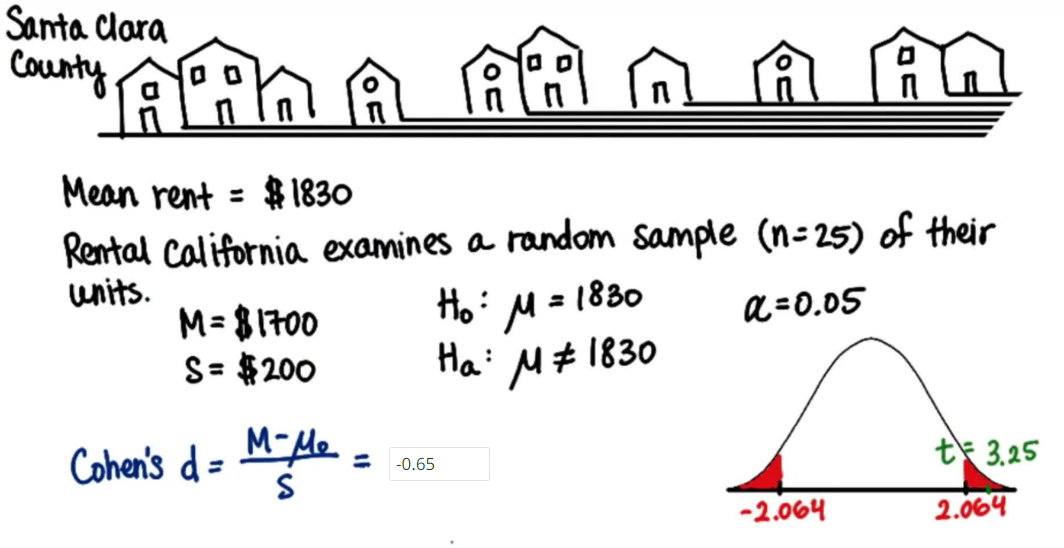 Santa Clara
County
Mean rent = $1830
Rental California examines a random sample (n=25) of their
units.
M = $1700
S = $200
H₀: μ = 1830
Hₐ: μ ≠ 1830
α=0.05
Cohen's d = (M-μ₀)/S = -0.65
t = 3.25
-2.064
2.064